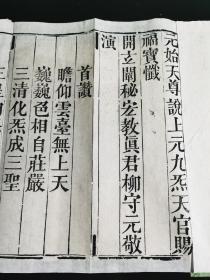 元始天尊說上元九炁天官賜
福寶懺
開玄闡秘宏教眞君柳守元敬
演
首讚
瞻仰雲臺無上天
巍巍色相自莊嚴
三清化炁成三聖